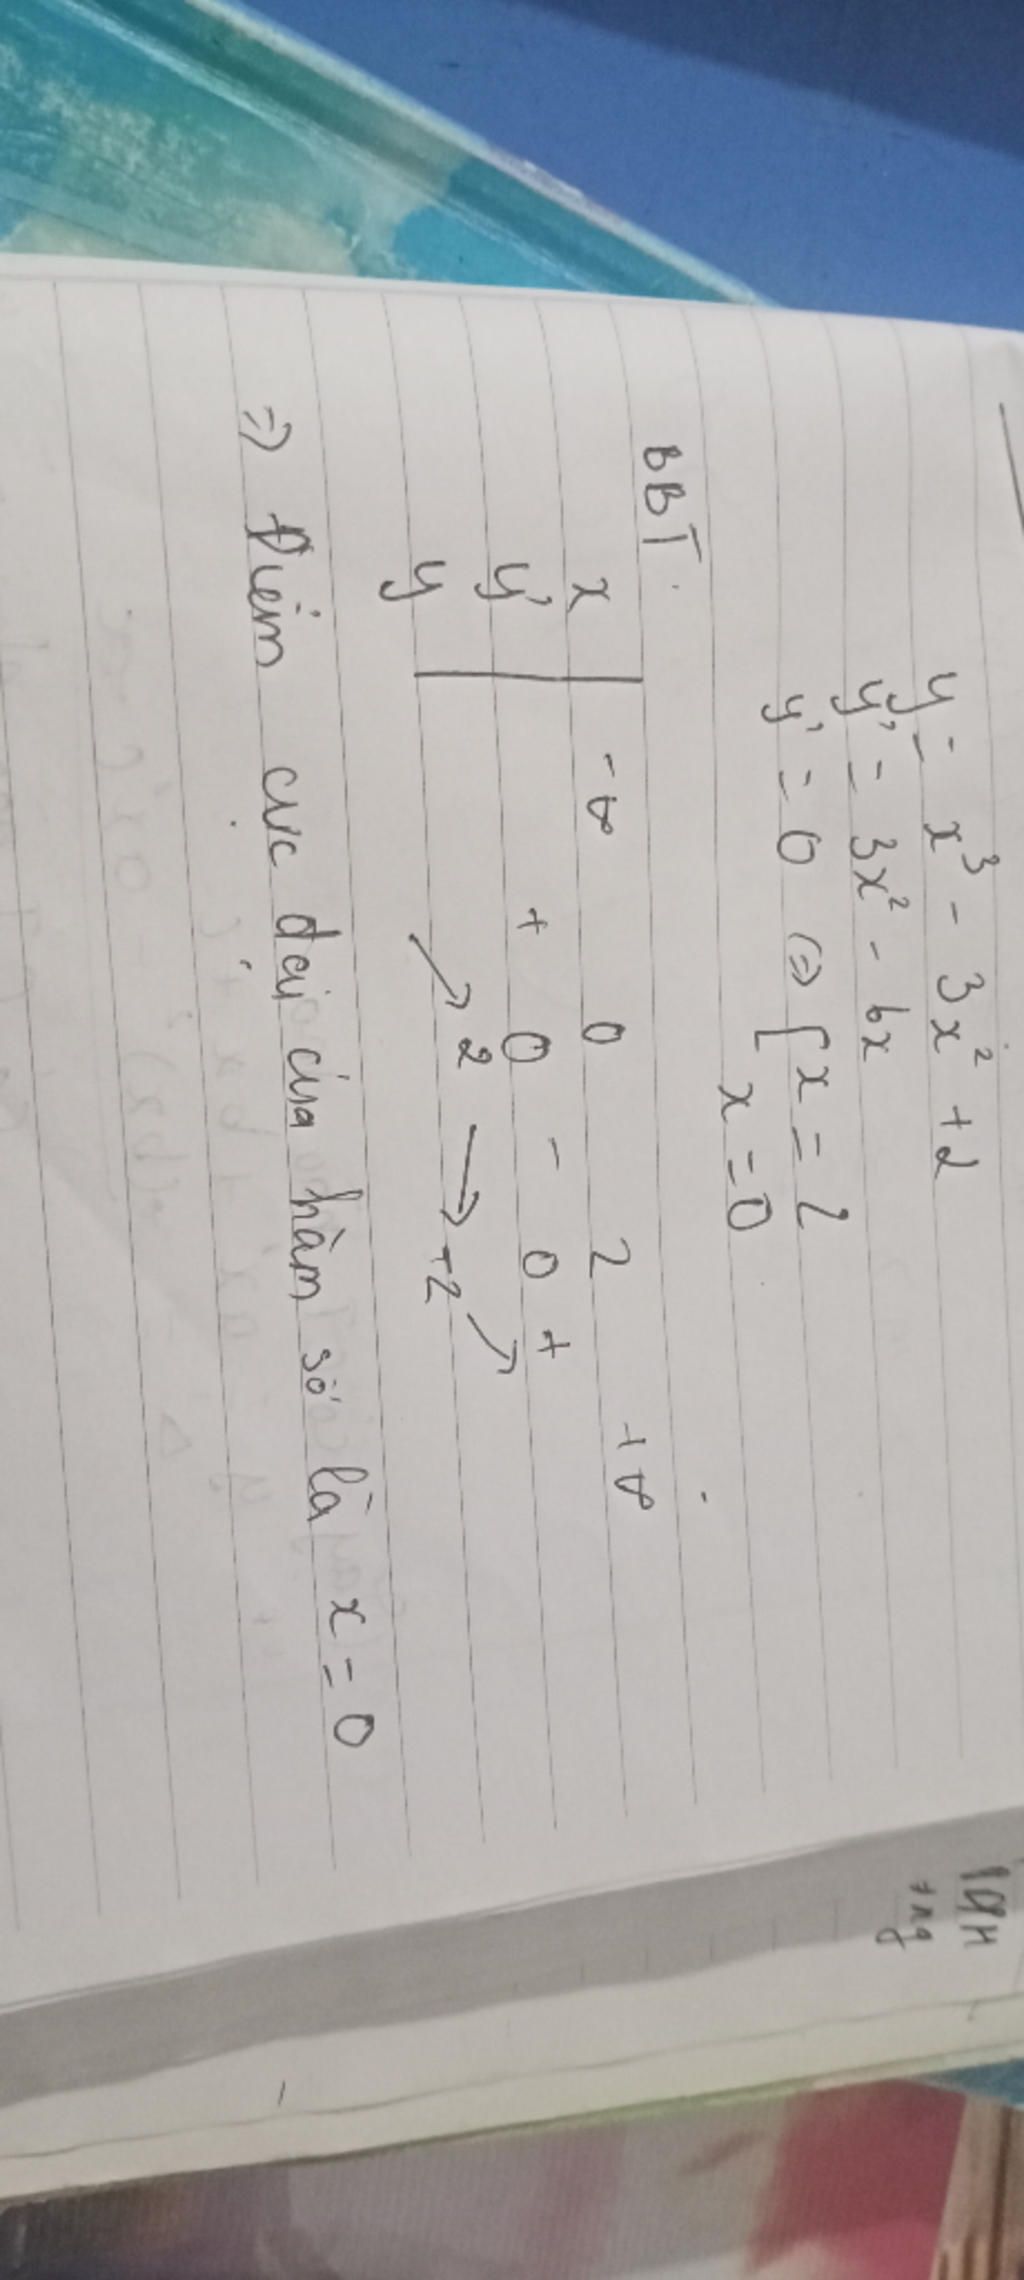 y = x³ - 3x² + 2
y' = 3x² - 6x
y' = 0 ⇔ [ x = 2
x = 0
BBT.
x -∞ 0 2 +∞
y' + 0 - 0 +
y ↗ 2 ↘ -2 ↗
⇒ Điểm cực đại của hàm số là x = 0